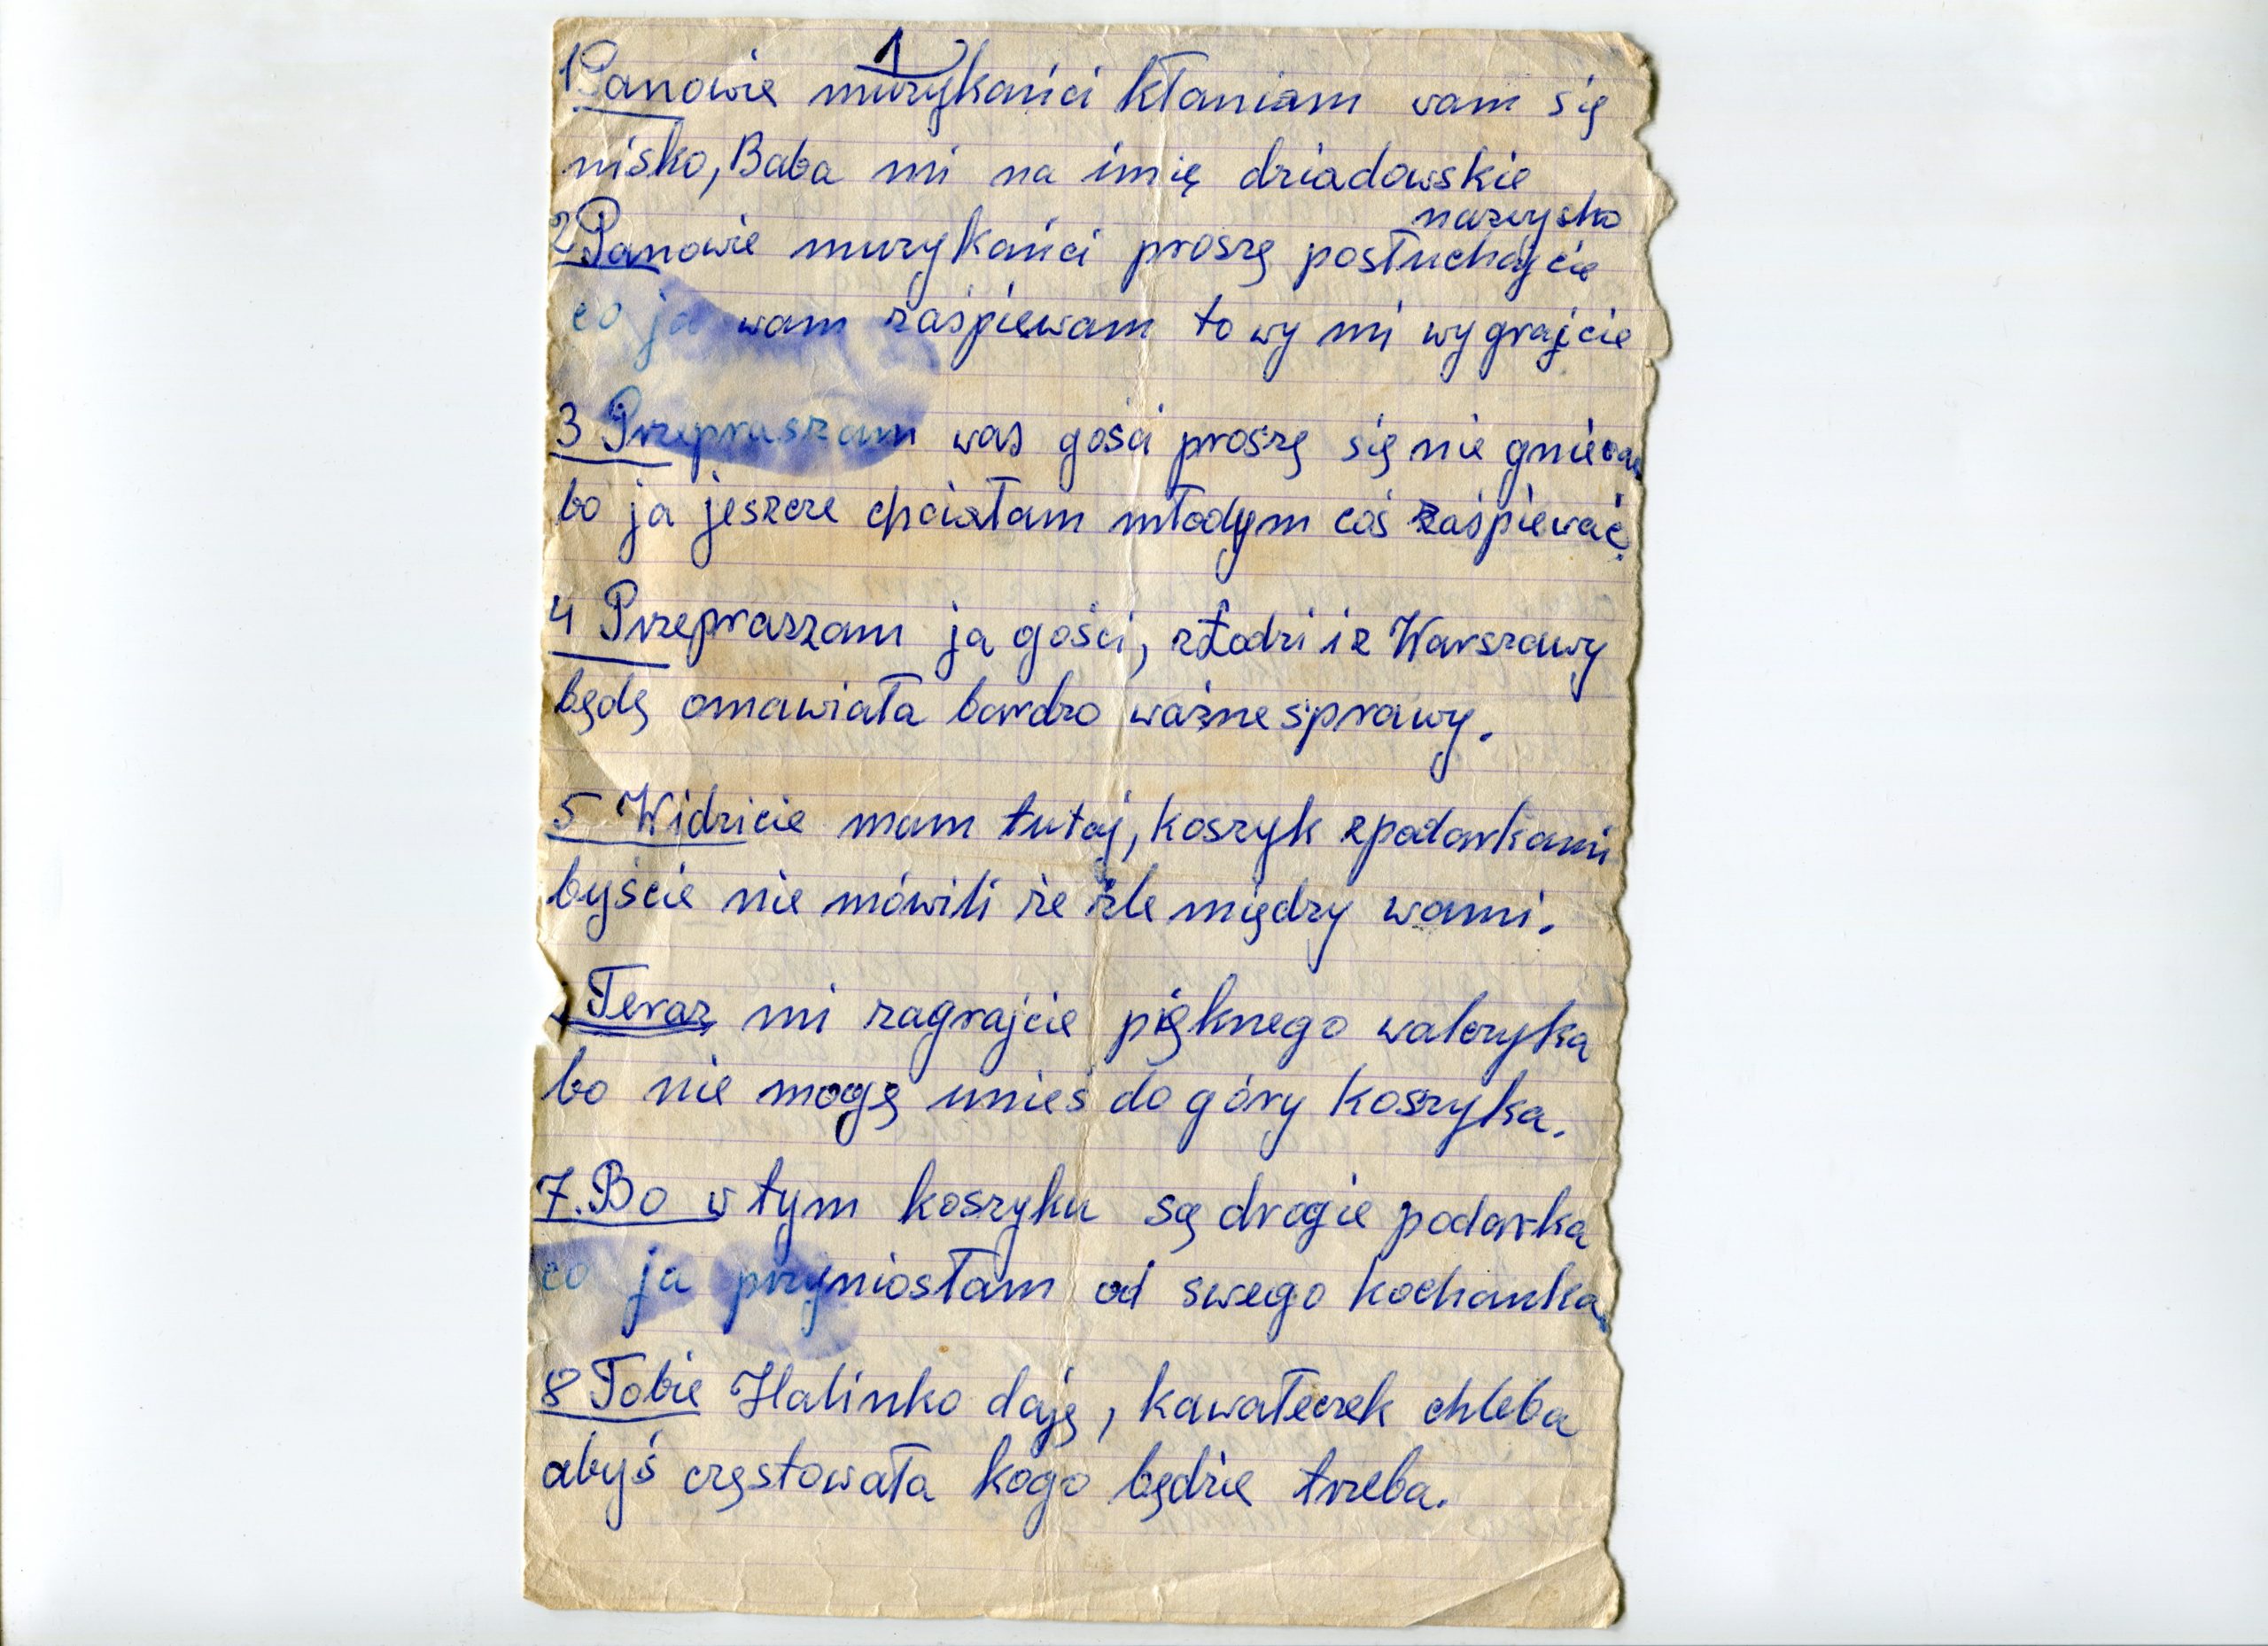 1
1 Panowie muzykańci kłaniam vam się
nisko, Baba mi na imię dziadowskie
nazwysko
2 Panowie muzykańci proszę posłuchajcie
co ja wam zaśpiewam to wy mi wygrajcie
3 Przepraszam was gości proszę się nie
bo ja jeszcze chciałam młodym coś zaśpievać
4 Przeprazzam ja gości, z Łodzi i z Warszawy
będę omawiała bardzo ważne sprawy.
5 Widzicie mam tutaj, koszyk z podarkami
byście nie mówili że źle między wami.
Teraz mi zagrajcie pięknego walczyka
bo nie mogę unieś do góry koszyka.
7. Bo w tym koszyku są drogie podarka
co ja przyniosłam od swego kochanka
8 Tobie Halinko daję, kawałeczek chleba
abyś częstowała kogo będzie trzeba.